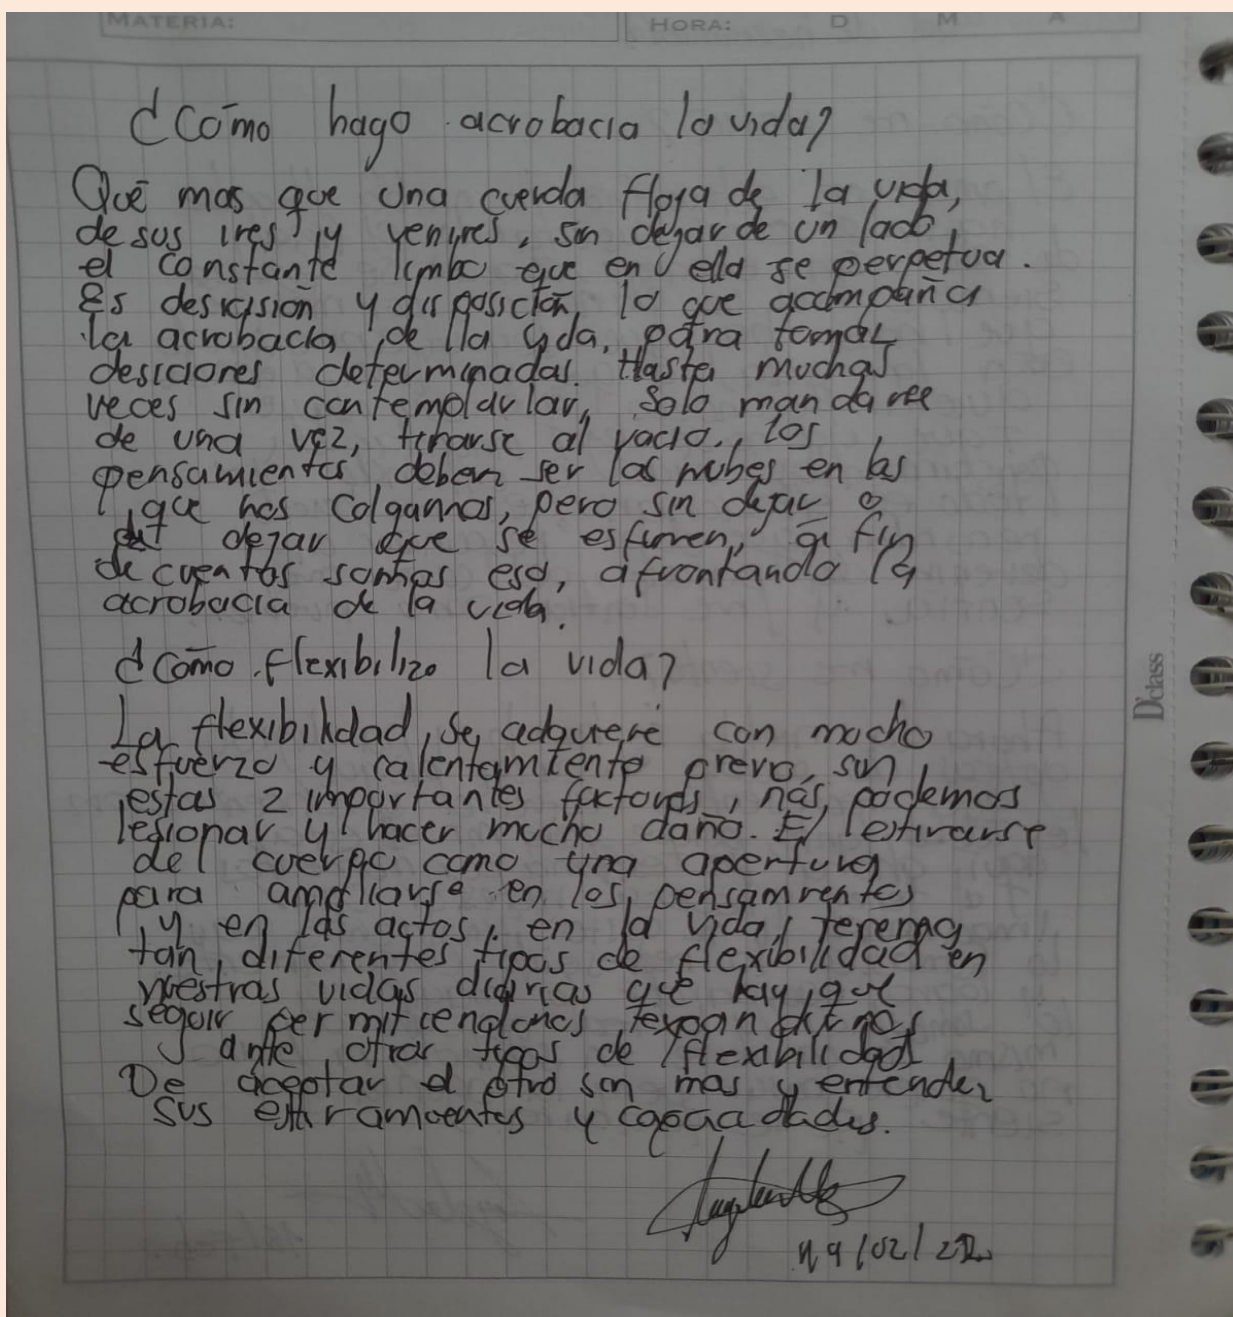 MATERIA:
HORA: D M A
¿Cómo hago acrobacia la vida?
Qué mas que una cuerda floja de la vida,
de sus ires y venires, sin dejar de un lado,
el constante limbo que en ella se perpetua.
Es desicisión y disposición, lo que acompaña
la acrobacia de la vida, para tomar
desiciones determinadas. Hasta muchas
veces sin contemplarlar, solo mandarse
de una vez, tirarse al vacio., los
pensamientos deben ser las nubes en las
que nos colgamos, pero sin dejar o
dejar que se esfumen, a fin
de cuentas somos eso, afrontando la
acrobacia de la vida.
¿Cómo flexibilizo la vida?
La flexibilidad, se adquiere con mucho
esfuerzo y calentamiento previo, sin
estas 2 importantes factores, nos podemos
lesionar y hacer mucho daño. El estirarse
del cuerpo como una apertura
para ampliarse en los pensamientos
y en los actos, en la vida, tenemos
tan diferentes tipos de flexibilidad en
nuestras vidas diarias que hay que
seguir permitiendonos, expandirnos
ante otros tipos de flexibilidad
De aceptar el otro son mas y entender
sus estiramientos y capacidades.
/02/22
D'class